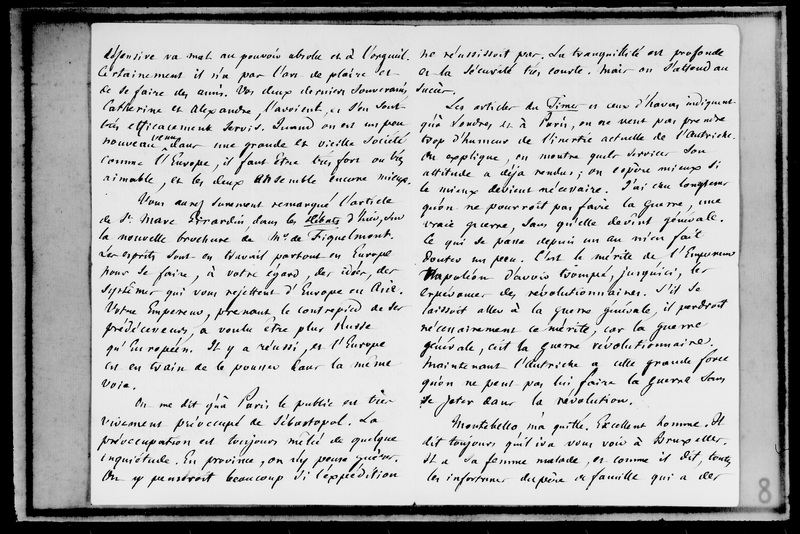 offensive va mal au pouvoir absolu et à l'orgueil.
Certainement il n'a pas l'art de plaire et
de se faire des amis. Vos deux derniers souverains,
Catherine et Alexandre, l'avoient, et s'en sont
très efficacement servis. Quand on est un peu
nouveau venu dans une grande et vieille société
comme l'Europe, il faut être très fort ou très
aimable, et les deux ensemble encore mieux.
Vous avez surement remarqué l'article
de St. Marc Girardin, dans les Débats d'hier, sur
la nouvelle brochure de Mr. de Fiquelmont.
Les esprits sont en travail partout en Europe
pour se faire, à votre égard, des idées, des
systêmes qui vous rejettent d'Europe en Asie.
Votre Empereur, prenant le contrepied de ses
prédécesseurs, a voulu être plus Russe
qu'Européen. Il y a réussi, et l'Europe
est en train de le pousser dans la même
voie.
On me dit qu'à Paris le public est très
vivement préoccupé de Sébastopol. La
préoccupation est toujours mêlée de quelque
inquiétude. En province, on n'y pense guères.
On y penseroit beaucoup si l'expédition
ne réussissoit pas. La tranquillité est profonde
et la sécurité très courte. Mais on s'attend au
succès.
Les articles du Times et ceux d'havas indiquent
qu'à Londres et à Paris, on ne veut pas prendre
trop d'humeur de l'inertie actuelle de l'Autriche.
On explique, on montre quels services son
attitude a déjà rendus; on espère mieux si
le mieux devient nécessaire. J'ai cru longtems
qu'on ne pourroit pas faire la guerre, une
vraie guerre, sans qu'elle devînt générale.
Ce qui se passe depuis un an m'en fait
douter un peu. C'est le mérite de l'Empereur
Napoléon d'avoir trompé, jusqu'ici, les
espérances des révolutionnaires. S'il se
laissoit aller à la guerre générale, il perdroit
nécessairement ce mérite, car la guerre
générale, c'est la guerre révolutionnaire.
Maintenant l'Autriche a cette grande force
qu'on ne peut pas lui faire la guerre sans
se jeter dans la révolution.
Montebello m'a quitté. Excellent homme. Il
dit toujours qu'il ira vous voir à Bruxelles.
Il a sa femme malade, et comme il dit, toutes
les infortunes du père de famille qui a des
8